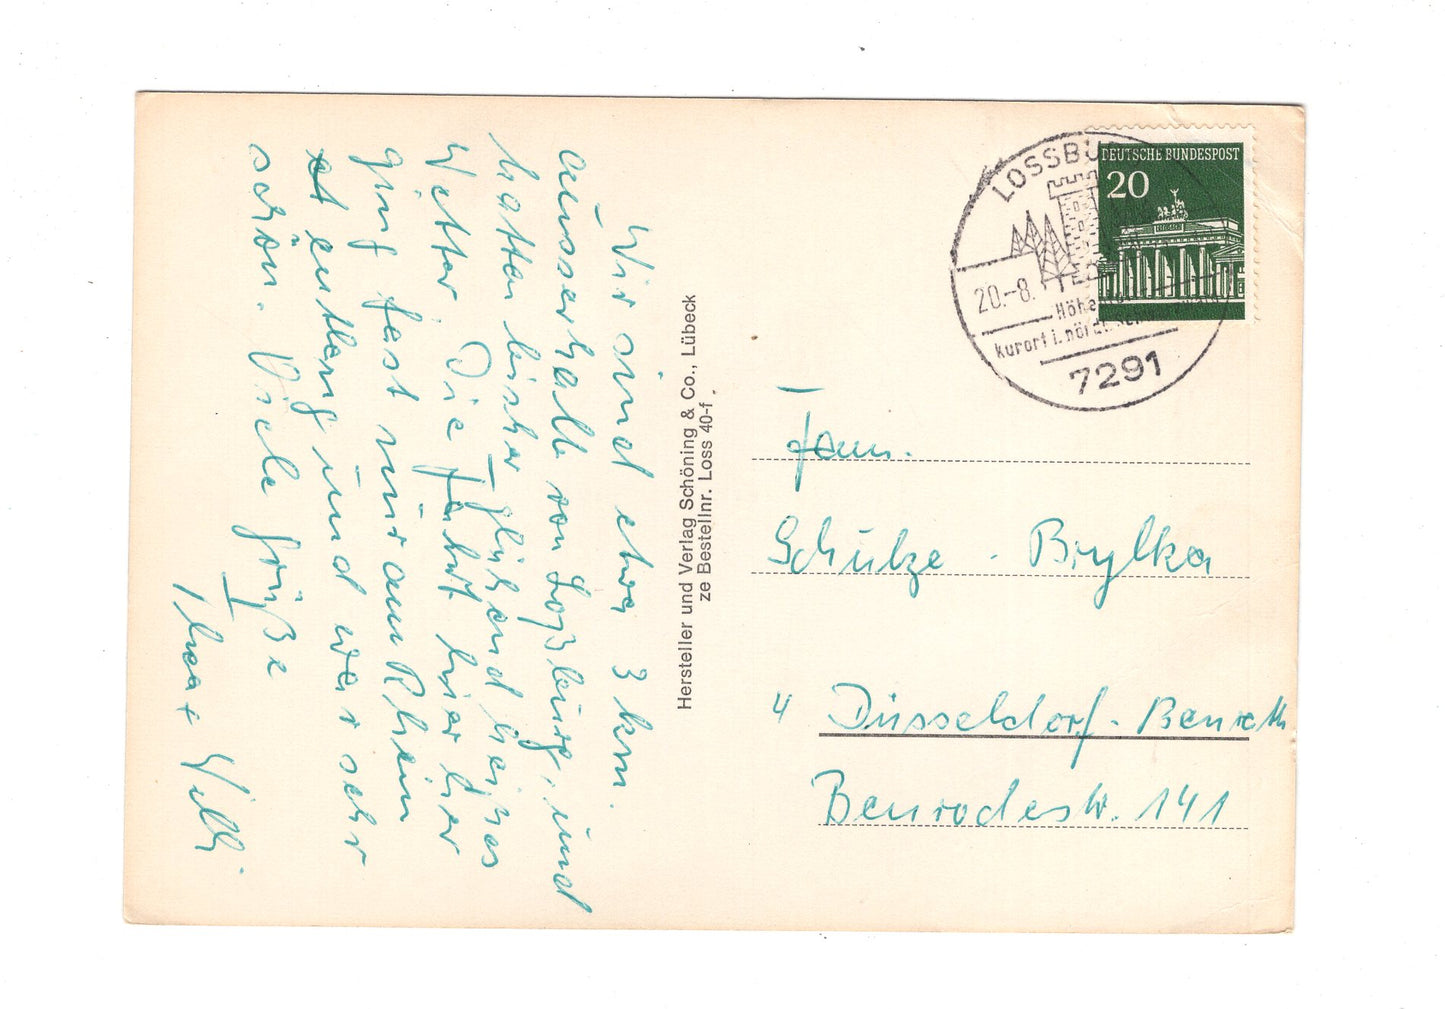 Wir sind etwa 3 km.
ausserhalb von Loßburg, und
hatten bisher glühend heißes
Wetter. Die Fahrt hier her
ging fast nur am Rhein
entlang und war sehr
schön. Viele Grüße
Willi
Hersteller und Verlag Schöning & Co., Lübeck
ze Bestellnr. Loss 40-f
LOSSBU
20.-8.
Höhe
kurort i. nördl.
7291
DEUTSCHE BUNDESPOST
20
Fam.
Schulze - Brylka
4 Düsseldorf - Benrath
Benrodestr. 141